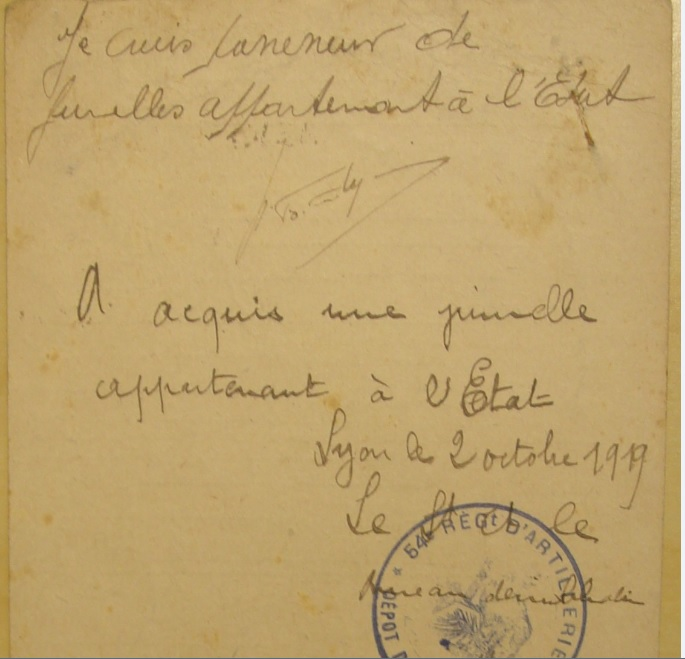 Je suis
de
jumelles appartenant à l'État
A acquis une jumelle
appartenant à l'État
Lyon le 2 octobre 1919
Le
le
bureau
54e RÉGt D'ARTILLERIE
DEPOT